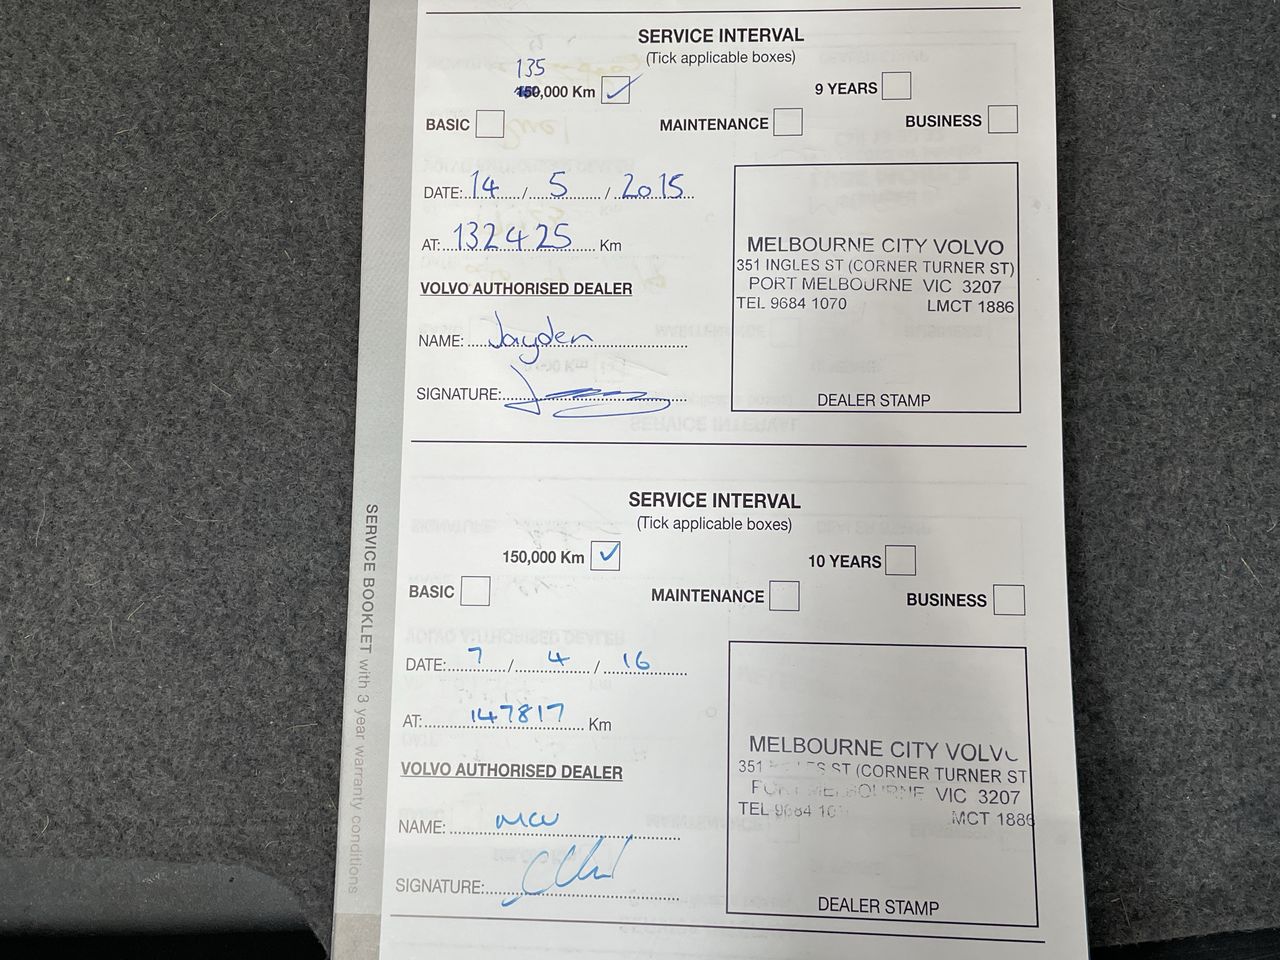 SERVICE INTERVAL
(Tick applicable boxes)
135
150,000 Km ✓ 9 YEARS
BASIC MAINTENANCE BUSINESS
DATE: 14 / 5 / 2015
AT: 132425 Km
VOLVO AUTHORISED DEALER
NAME: Jayden
SIGNATURE:
MELBOURNE CITY VOLVO
351 INGLES ST (CORNER TURNER ST)
PORT MELBOURNE VIC 3207
TEL 9684 1070 LMCT 1886
DEALER STAMP
SERVICE INTERVAL
(Tick applicable boxes)
150,000 Km ✓ 10 YEARS
BASIC MAINTENANCE BUSINESS
DATE: 7 / 4 / 16
AT: 147817 Km
VOLVO AUTHORISED DEALER
NAME:
SIGNATURE:
MELBOURNE CITY VOLVO
351 ST (CORNER TURNER ST
PORT MELBOURNE VIC 3207
TEL 9684 MCT 1886
DEALER STAMP
SERVICE BOOKLET with 3 year warranty conditions